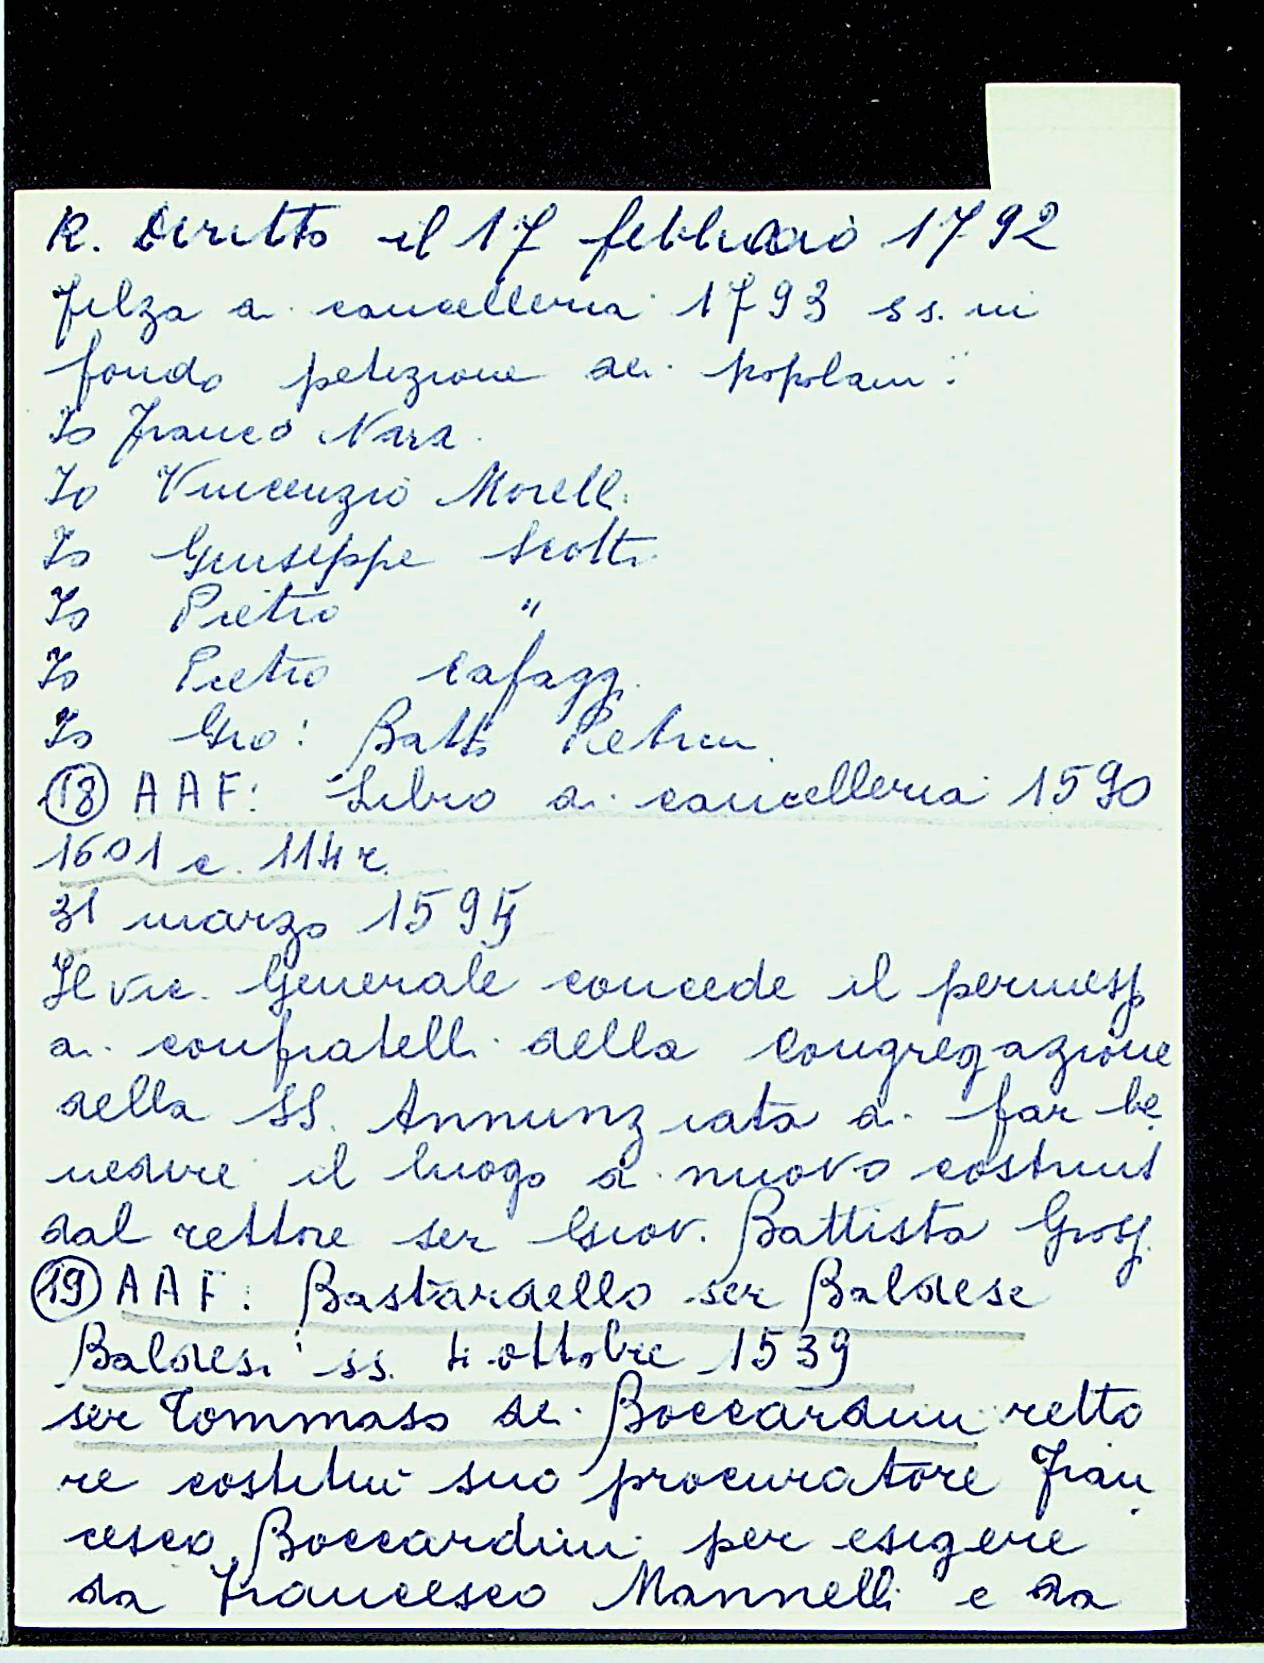 R. Diritto il 17 febbraio 1792
filza di cancelleria 1793 ss. in
fondo petizione dei popolani:
Io Franco Nara
Io Vincenzio Morelli
Io Giuseppe Scotti
Io Pietro "
Io Pietro Cafaggi
Io Gio: Batta Pietrini
(18) AAF: Libro di cancelleria 1590
1601 c. 114 r.
31 marzo 1595
Il vic. Generale concede il permesso
ai confratelli della Congregazione
della SS. Annunziata di far be
nedire il luogo di nuovo costruito
dal rettore ser Giov. Battista Grossi
(19) AAF: Bastardello ser Baldese
Baldesi ss. 4 ottobre 1539
ser Tommaso dei Boccardini retto
re costituì suo procuratore Fran
cesco Boccardini per esigere
da Francesco Mannelli e da